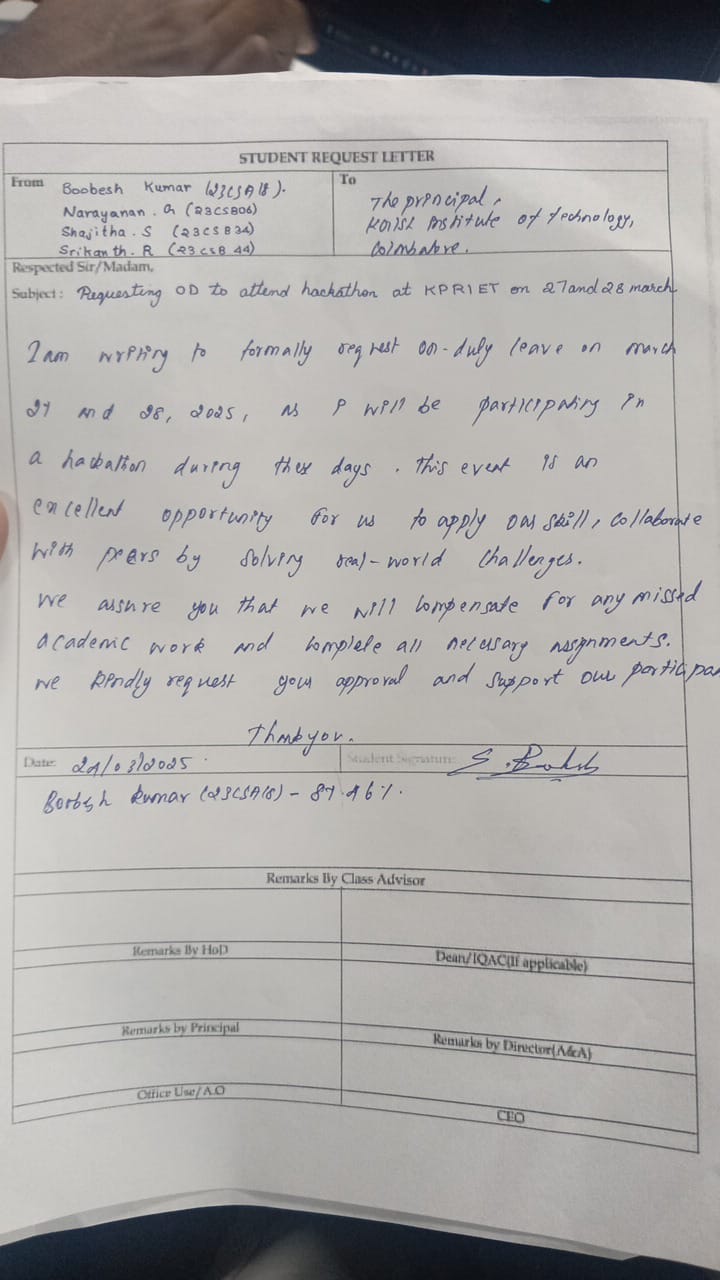 STUDENT REQUEST LETTER
From
Boobesh Kumar (23CSA18).
Narayanan . G (23CSB06)
Shajitha . S (23CSB34)
Srikanth. R (23CSB44)
To
The principal,
Institute of Technology,
Coimbatore.
Respected Sir/Madam,
Subject : Requesting OD to attend hackathon at KPRIET on 27 and 28 march
I am writing to formally request on-duly leave on march
27 and 28, 2025, as I will be participating in
a hackathon during these days. This event is an
excellent opportunity for us to apply our skill, collaborate
with peers by solving real-world challenges.
We assure you that we will compensate for any missed
academic work and complete all necessary assignments.
We kindly request your approval and support our participa
Thankyou.
Date: 24/03/2025
Student Signature:
Boobesh Kumar (23CSA18) - 87.46%.
Remarks By Class Advisor
Remarks By HoD
Dean/IQAC(If applicable)
Remarks by Principal
Remarks by Director(A&A)
Office Use/A.O
CEO